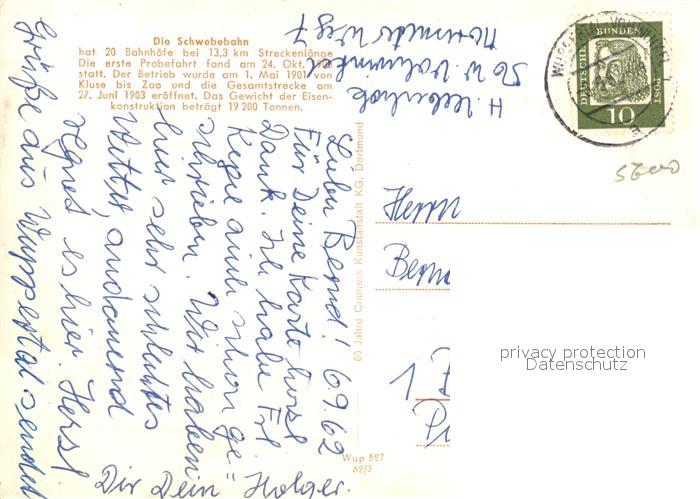 Die Schwebebahn
hat 20 Bahnhöfe bei 13,3 km Streckenlänge
Die erste Probefahrt fand am 24. Okt. 1900
statt. Der Betrieb wurde am 1. Mai 1901 von
Kluse bis Zoo und die Gesamtstrecke am
27. Juni 1903 eröffnet. Das Gewicht der Eisen-
konstruktion beträgt 19 200 Tonnen.
H.
56 W.
Weg 7
DEUTSCHE BUNDES POST
10
5600
Lieber Bernd! 6.9.62
Für Deine Karte herzl
Dank. Ich habe Frl
auch schon ge-
schrieben. Wir haben
hier sehr schlechtes
Wetter, andauernd
regnet es hier. Herzl
Grüße aus Wuppertal sendet
Dir Dein Holger.
60 Jahre Cramers Kunstanstalt KG, Dortmund
Wup 527
62/3
Herrn
1
privacy protection
Datenschutz